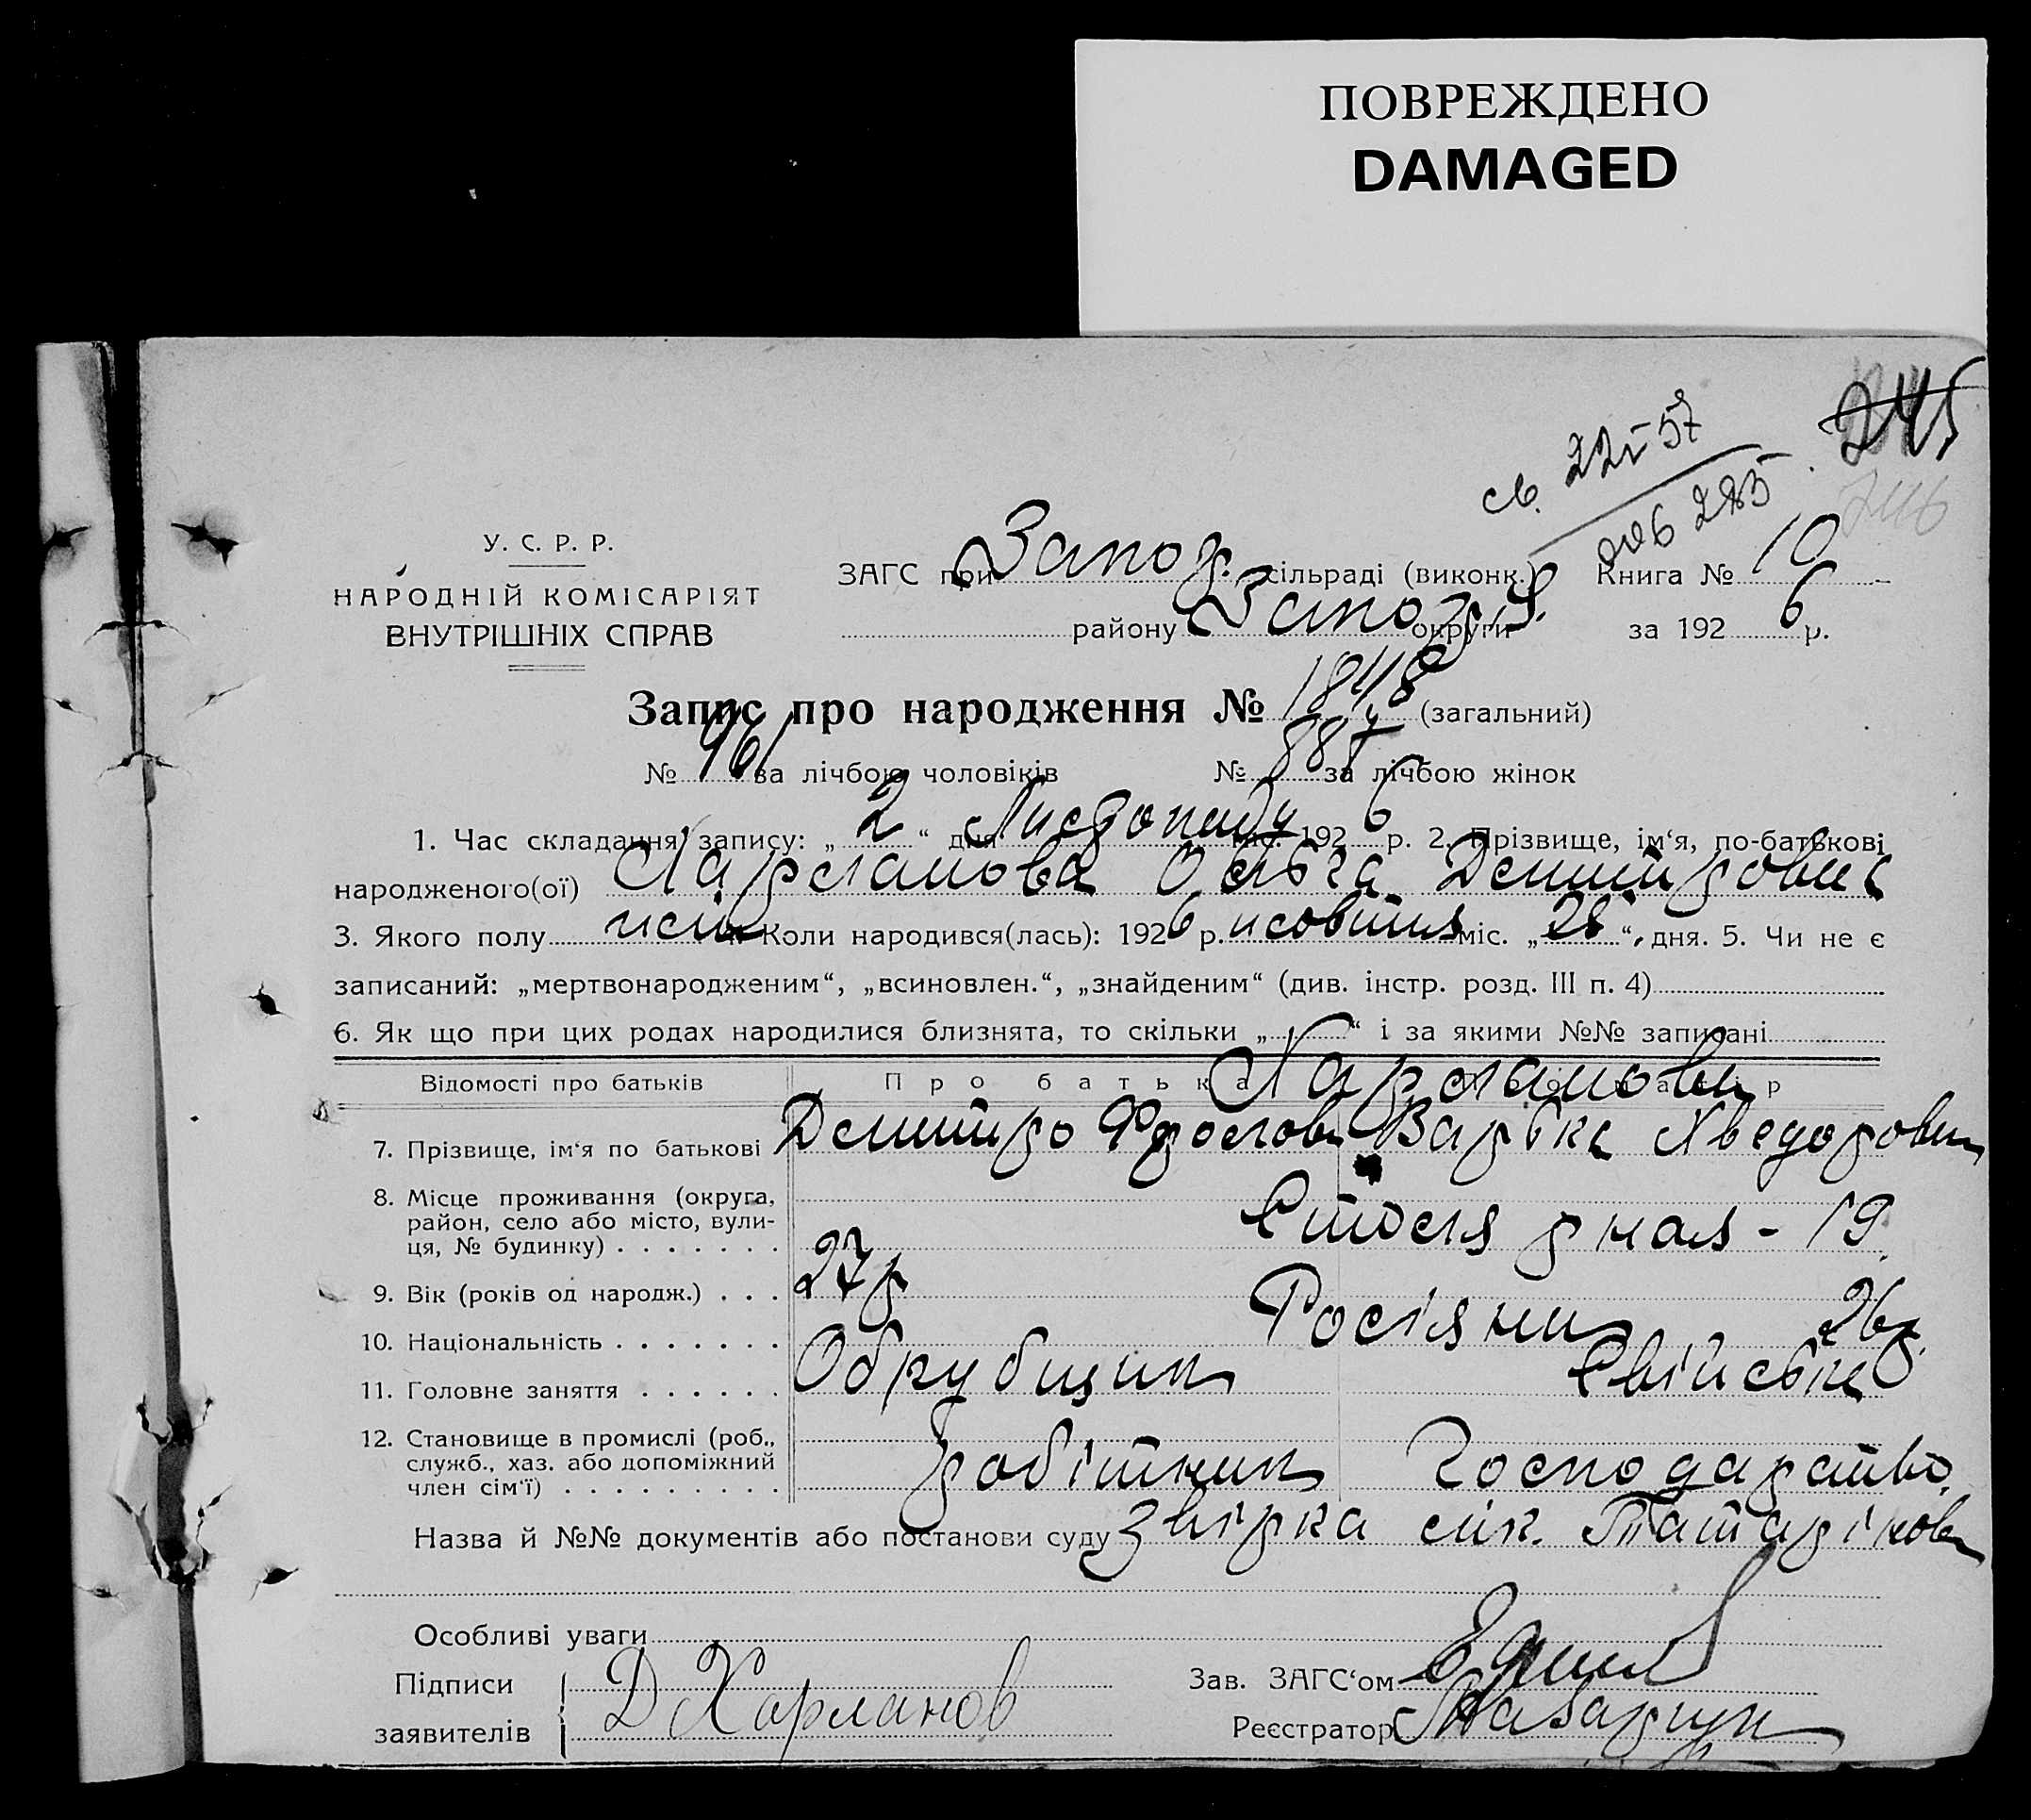 ПОВРЕЖДЕНО
DAMAGED
245
св. 22 V 57
285
У. С. Р. Р.
НАРОДНІЙ КОМІСАРІЯТ
ВНУТРІШНІХ СПРАВ
ЗАГС при Запоз. сільраді (виконк.) Книга № 10
району Запоріз. округи за 1926 р.
Запис про народження № 1848 (загальний)
№ 961 за лічбою чоловіків № 887 за лічбою жінок
1. Час складання запису: „ 2 “ дня Листопаду міс. 1926 р. 2. Прізвище, ім‘я, по-батькові
народженого(ої) Харланова Ольга Демитровна
3. Якого полу жін 4. Коли народився(лась): 1926 р. жовтня міс. „ 28 “ дня. 5. Чи не є
записаний: „мертвонародженим“, „всиновлен.“, „знайденим“ (див. інстр. розд. III п. 4)
6. Як що при цих родах народилися близнята, то скільки „ “ і за якими №№ записані
Відомості про батьків Про батька Харланови
7. Прізвище, ім‘я по батькові Демитро Фролов Варька Хведоровн
8. Місце проживання (округа, район, село або місто, вулиця, № будинку) . . . . . . . 19
9. Вік (років од народж.) . . . 27 р 26 р.
10. Національність . . . . . . . Росіяни
11. Головне заняття . . . . . . Обрубщик Свійське
12. Становище в промислі (роб., служб., хаз. або допоміжний член сім‘ї) . . . . . . . . . робітник господарство.
Назва й №№ документів або постанови суду Звірка слк. Татарінов
Особливі уваги
Підписи заявителів Д Харланов
Зав. ЗАГС‘ом
Реєстратор Назарчук